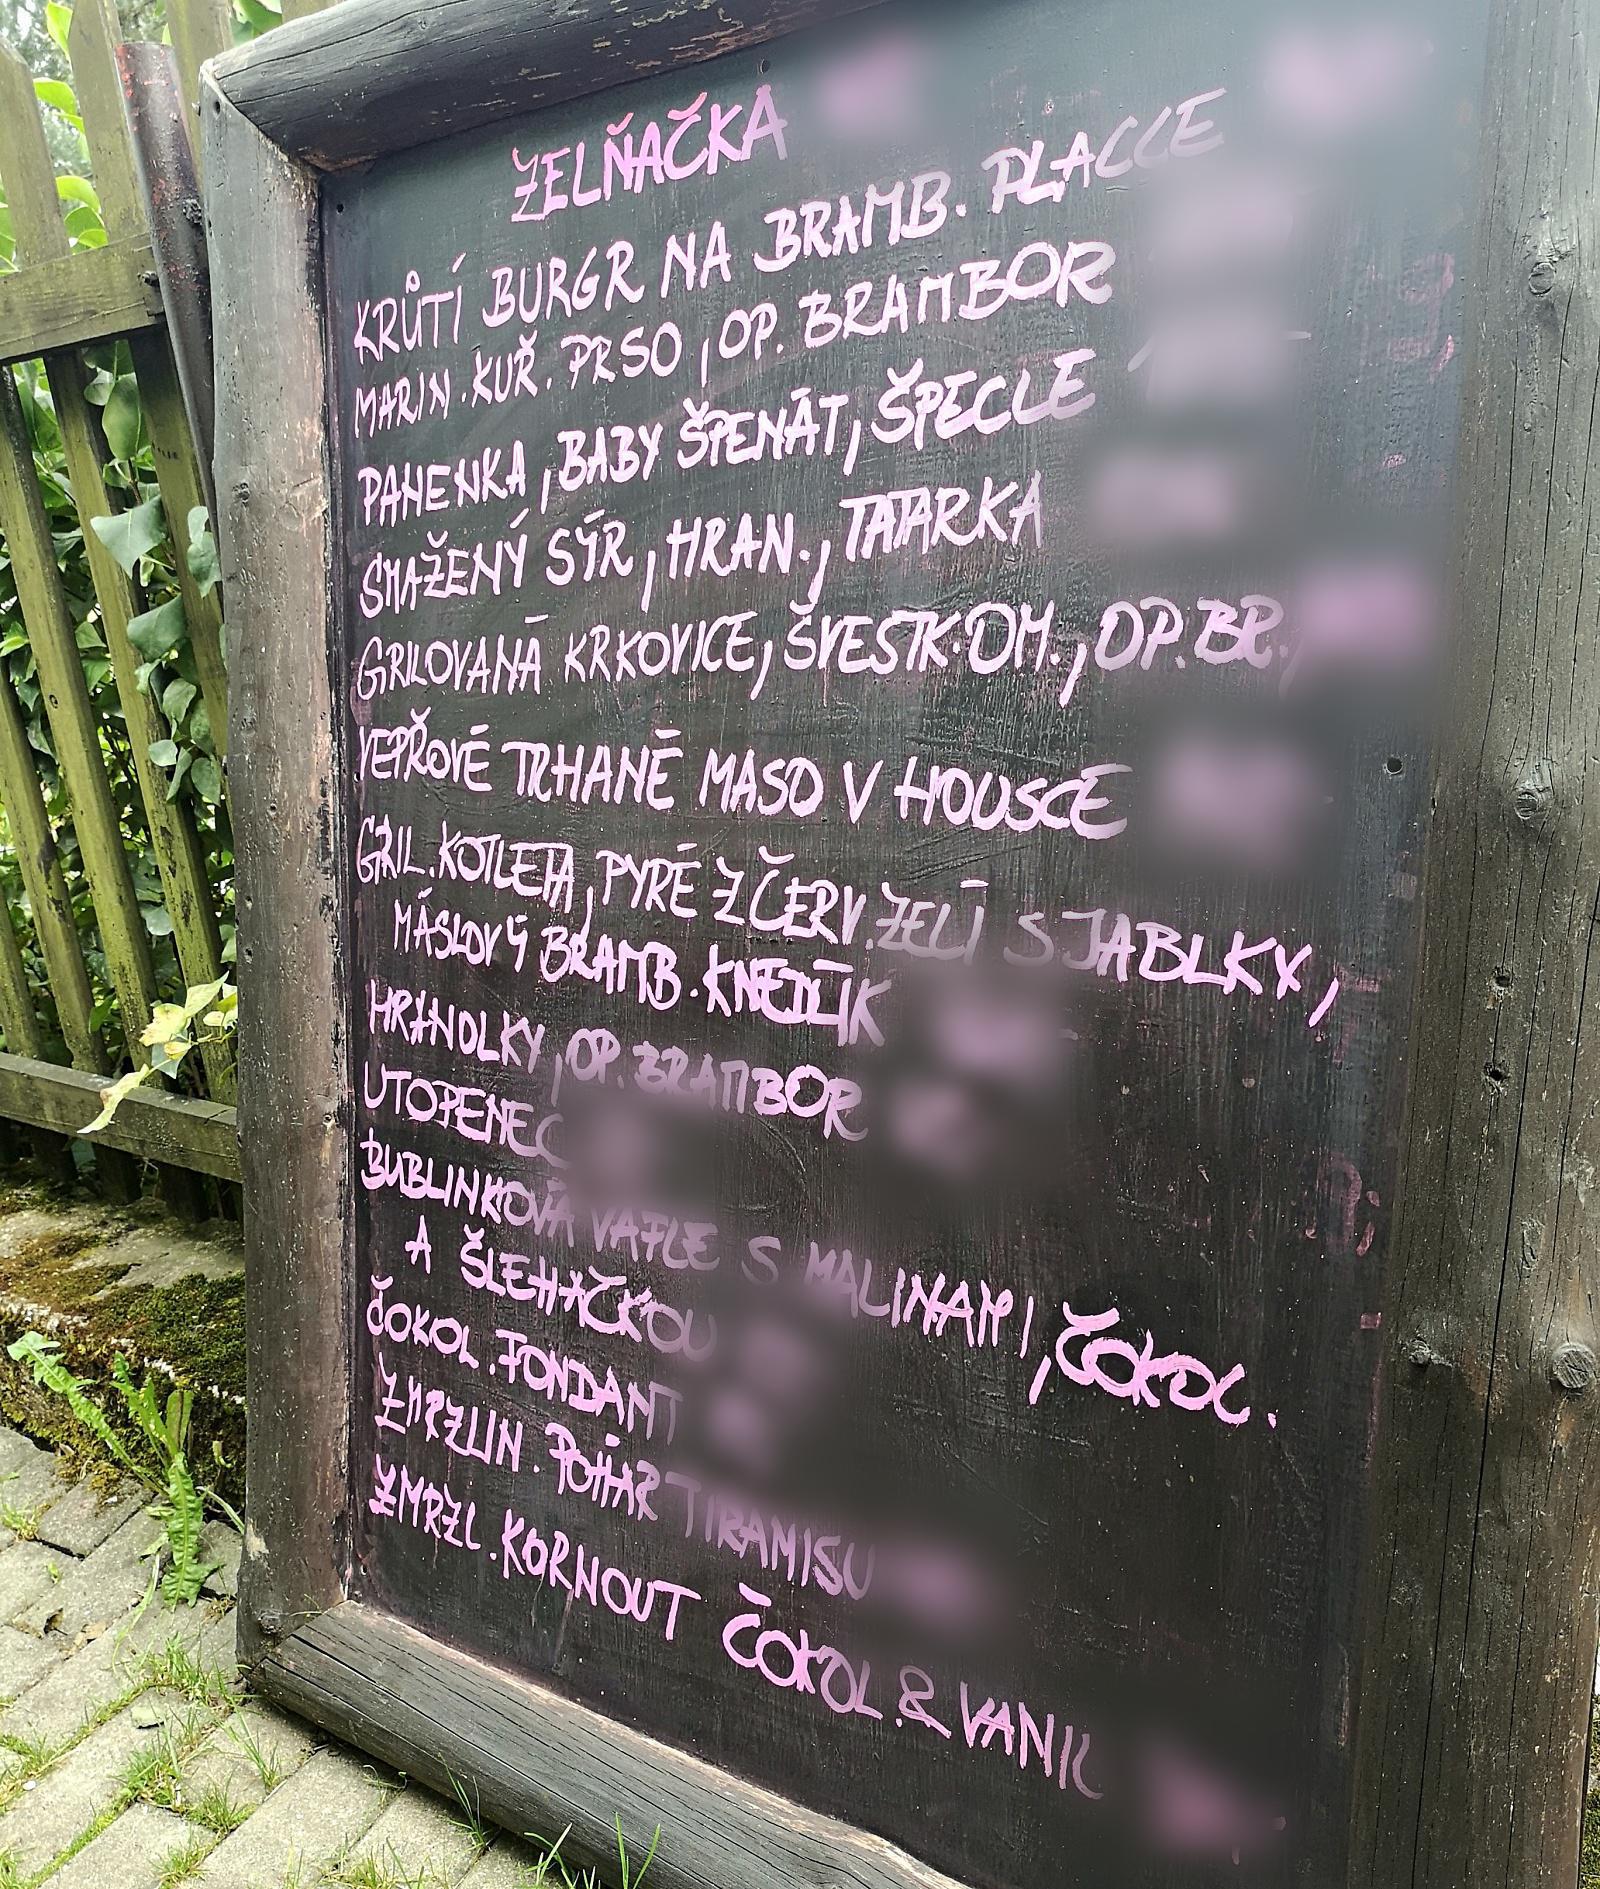 ZELŇAČKA
KRŮTÍ BURGR NA BRAMB. PLACCE
MARIN. KUŘ. PRSO, OP. BRAMBOR
PANENKA, BABY ŠPENÁT, ŠPECLE
SMAŽENÝ SÝR, HRAN., TATARKA
GRILOVANÁ KRKOVICE, ŠVESTK. OM., OP. BR.,
VEPŘOVÉ TRHANÉ MASO V HOUSCE
GRIL. KOTLETA, PYRÉ Z ČERV. ZELÍ S JABLKY,
MÁSLOVÝ BRAMB. KNEDLÍK
HRANOLKY, OP. BRAMBOR
UTOPENEC
BUBLINKOVÁ VAFLE S MALINAMI, ČOKOL.
A ŠLEHAČKOU
ČOKOL. FONDÁNT
ZMRZLIN. POHÁR TIRAMISU
ZMRZL. KORNOUT ČOKOL. & VANIL